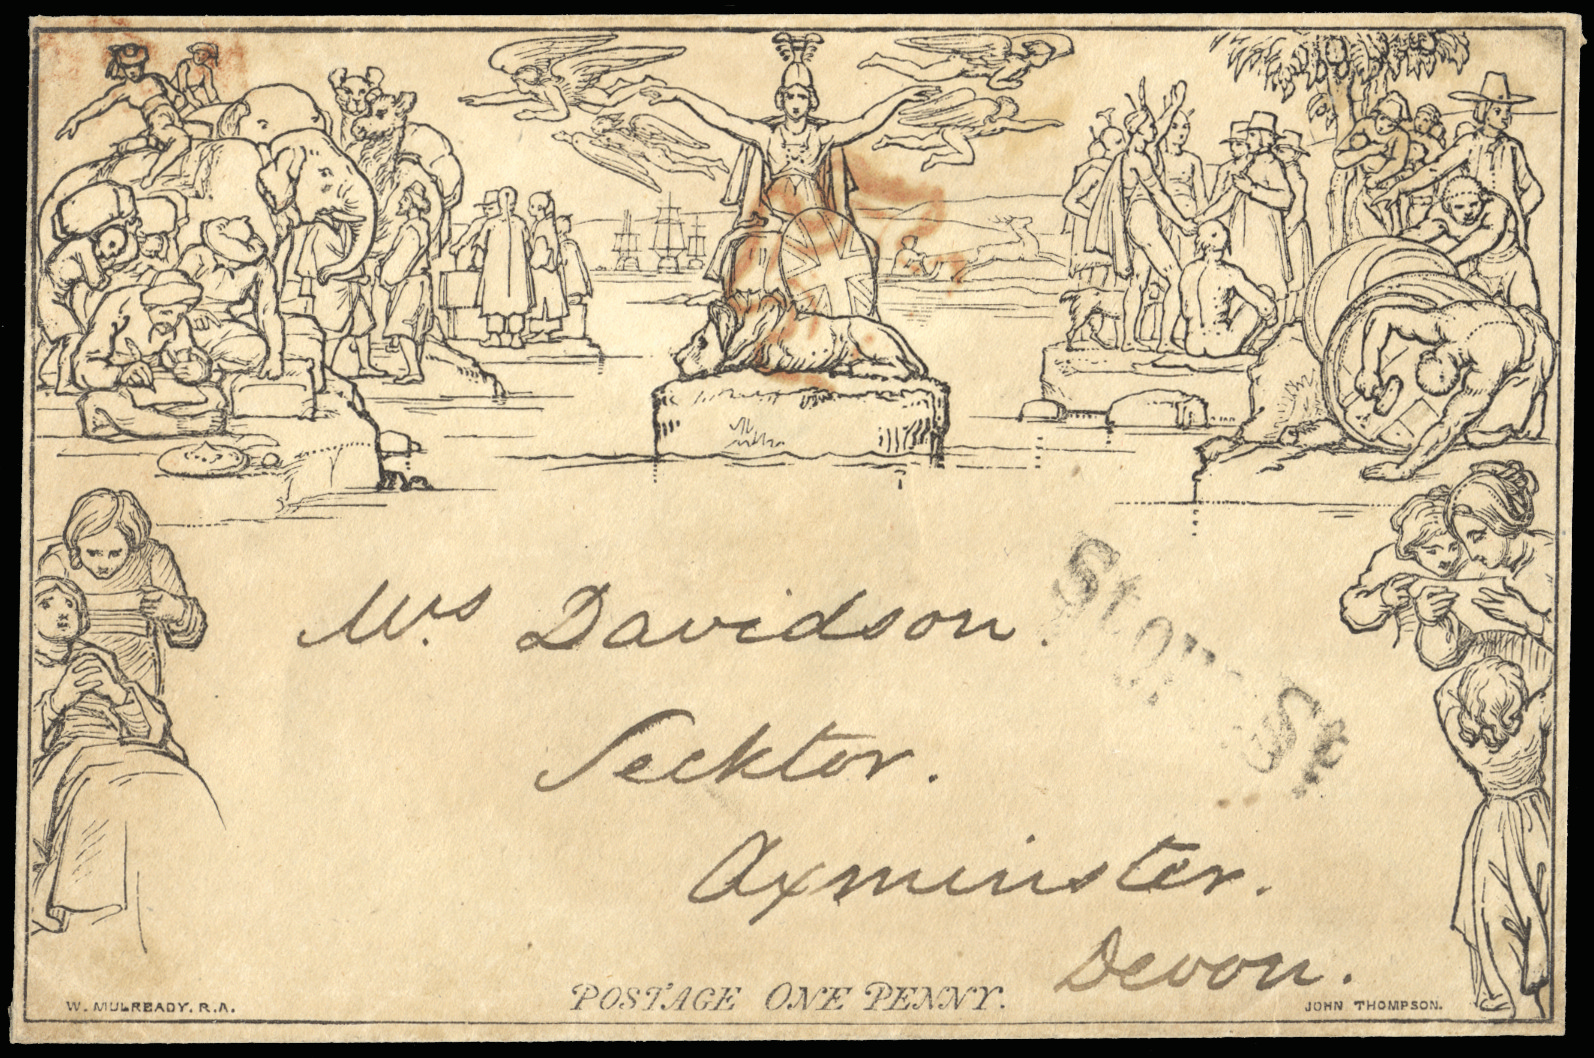 Mrs Davidson.
Secktor.
Axminster.
Devon.
POSTAGE ONE PENNY.
W. MULREADY. R.A.
JOHN THOMPSON.
St
St